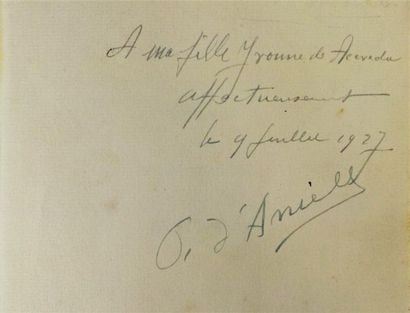 A ma fille Yvonne de Acevedo
affectueusement
le 9 Juillet 1927
d'